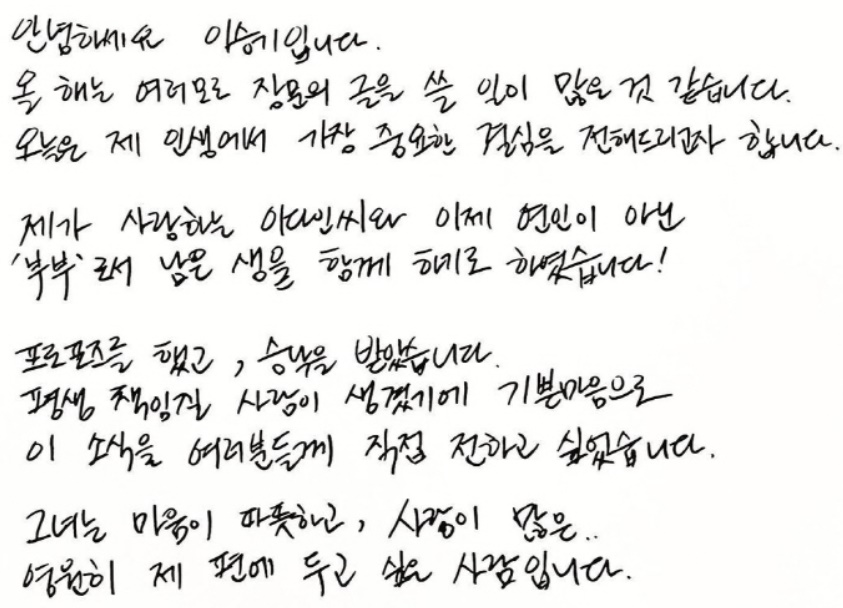 안녕하세요 이승기입니다.
올 해는 여러모로 장문의 글을 쓸 일이 많은 것 같습니다.
오늘은 제 인생에서 가장 중요한 결심을 전해드리고자 합니다.
제가 사랑하는 이다인씨와 이제 연인이 아닌
'부부'로서 남은 생을 함께 하기로 하였습니다!
프로포즈를 했고, 승낙을 받았습니다.
평생 책임질 사람이 생겼기에 기쁜마음으로
이 소식을 여러분들께 직접 전하고 싶었습니다.
그녀는 마음이 따뜻하고, 사랑이 많은..
영원히 제 편에 두고 싶은 사람입니다.